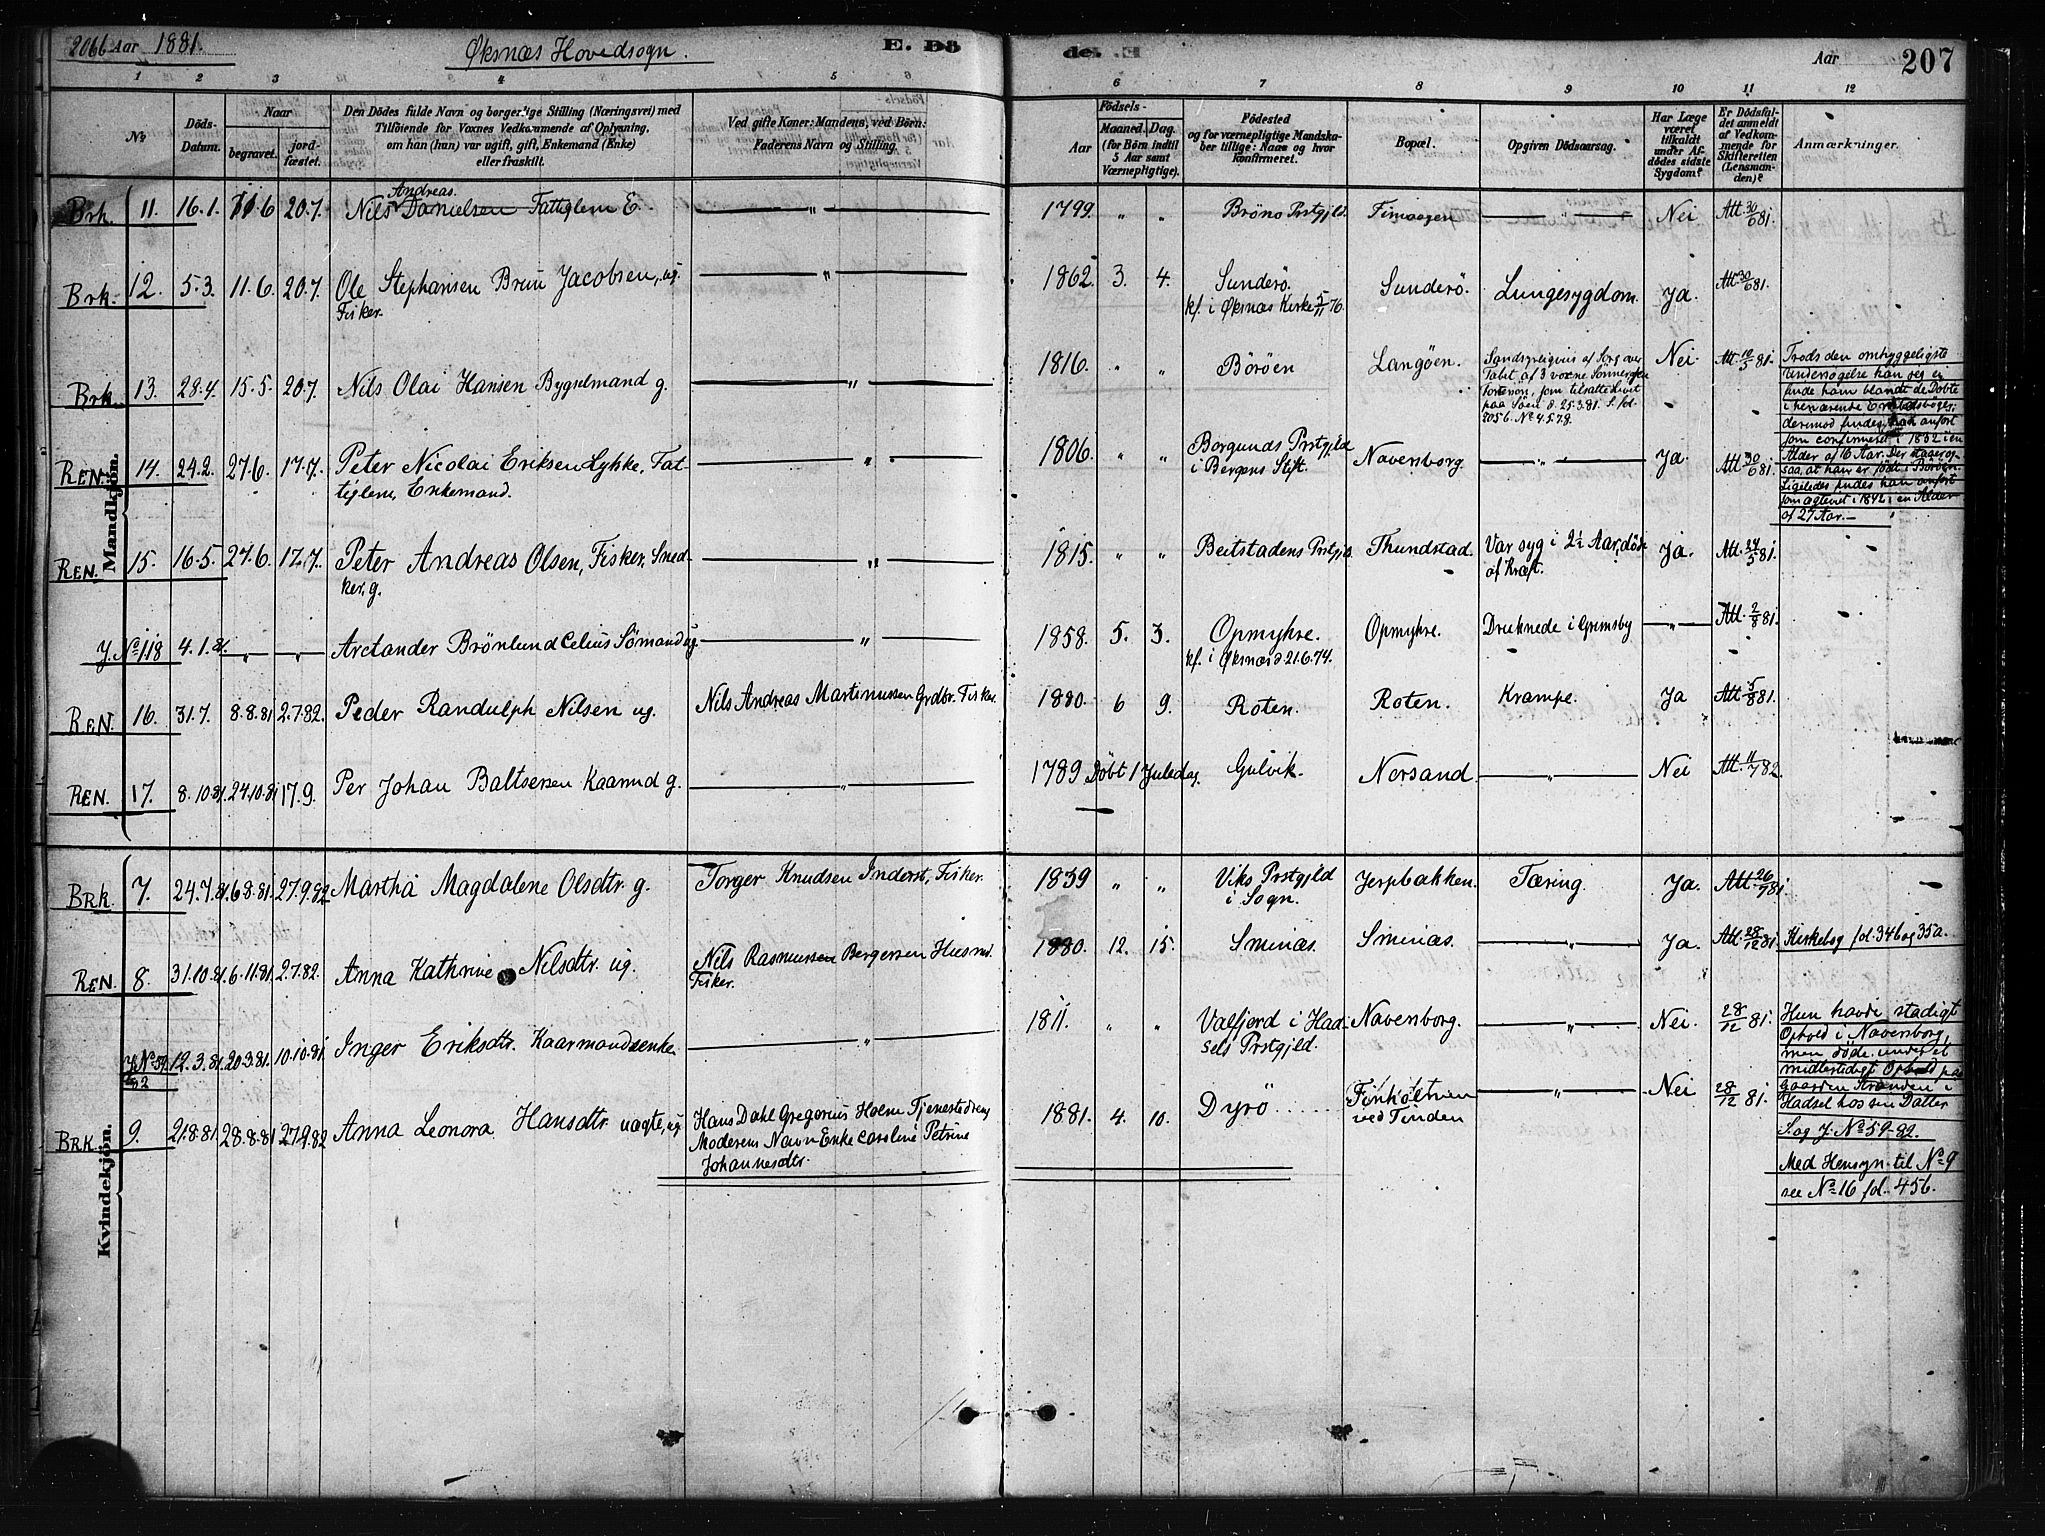 206b Aar 1881. Øksnæs Hovedsogn. E. Dö
de. Aar 207
1 2 3 4 5
6 7 8 9 10 11 12
No
Döds-Datum.
Naar
begravet.
jordfæstet.
Den Dödes fulde Navn og borgerlige Stilling (Næringsvei) med
Tilföiende for Voxnes Vedkommende af Oplysning,
om han (hun) var ugift, gift, Enkemand (Enke)
eller fraskilt.
Ved gifte Koner: Mandens, ved Börn:
Faderens Navn og Stilling.
Födsels-
Aar
Maaned. Dag.
(for Börn indtil
5 Aar samt
Værnepligtige).
Födested
og for værnepligtige Mandska-
ber tillige: Naar og hvor
konfirmeret.
Bopæl.
Opgiven Dödsaarsag.
Har Læge
været
tilkaldt
under Af-
dödes sidste
Sygdom?
Er Dödsfal-
det anmeldt
af Vedkom-
mende for
Skifteretten
(Lensman-
den)?
Anmærkninger.
Mandkjön.
Brk. 11. 16.1. 11.6 20.7. Nils Andreas Danielsen Fattiglem E. — " — 1799 " " Brönö Prstgjld. — " — Nei Att. 30/6 81.
Brk. 12. 5.3. 11.6. 20.7. Ole Stephansen Bruu Jacobsen, ug. — " — 1862. 3. 4. Sunderö. Sunderö. Lungesygdom. Ja. Att. 30/6 81.
Fisker. kf. i Øksnæs Kirke 5/11 76.
Brk. 13. 28.4. 15.5. 20.7. Nils Olai Hansen Bygselmand g. — " — 1816. " " Böröen Langöen. Nei. Att. 10/5 81.
Tabet af 3 voxne Sönner
paa Söen d. 25.3.81. S. fol.
205b. No 4.5.7.8.
Trods den omhyggeligste
Undersögelse kan jeg ei
finde ham blandt de Döbte
dermod findes han anfört
som confirmeret i 1832 i en
Alder af 16 Aar. Der staaer og-
saa, at han er födt i Böröen.
Ligeledes findes han anfört
som ægteviet i 1842 i en Alder
af 27 Aar. —
REN. 14. 24.2. 27.6. 17.7. Peter Nicolai Eriksen Lykke, Fat- — " — 1806. " " Borgunds Prstgjld Naversborg. — " — Ja. Att. 30/6 81.
tiglem, Enkemand. i Bergens Stift.
REN. 15. 16.5. 27.6. 17.7. Peter Andreas Olsen, Fisker, Sned- — " — 1815. " " Beitstadens Prstgjld. Thunstad. Var syg i 2½ Aar, döde Ja. Att. 24/5 81.
ker, g. af Kræft.
J. No 118 4.1.81. — " — — " — Arctander Brönlund Celius Sömand ug. — " — 1858. 5. 3. Opmyhre. Opmyhre. Druknede i Grimsby — " — Att. 2/8 81.
kf. i Øksnæs d. 21.6.74.
REN. 16. 31.7. 8.8.81 2.7.82. Peder Randulph Nilsen ug. Nils Andreas Martinussen Grdbr. Fisker. 1880. 6 9. Roten. Roten. Krampe. Ja Att. 5/8 81.
REN. 17. 8.10.81. 24.10.81 17.9. Per Johan Baltsersen Kaarmd g. — " — 1789 Döbt 1 Juledag. Gulvik. Norsand. — " — Nei Att. 11/7 82.
Kvindekjön.
BRK. 7. 24.7.81. 6.8.81. 27.9.82. Martha Magdalene Olsdtr. g. Torger Knudsen Inderst, Fisker. 1839 " " Viks Prstgjld Jerpbakken. Tæring. Ja. Att. 26/7 81.
i Sogn.
REN. 8. 31.10.81. 6.11.81. 2.7.82. Anna Kathrine Nilsdtr. ug. Nils Rasmussen Bergersen Husmd. 1880. 12. 15. Sminæs. Sminæs. — " — Ja. Att. 28/12 81. Kirkebog fol. 34b og 35a.
Fisker.
J. No 59/82 12.3.81. 20.3.81. 10.10.81. Inger Eriksdtr. Kaarmandsenke. — " — 1811. " " Valfjord i Had- Naversborg. — " — Nei. 28/12 81.
sels Prstgjld.
Hun havde stadigt
Ophold i Naversborg,
men döde under et
midlertidigt Ophold paa
Gaarden Stranden i
Hadsel hos sin Datter
S. og J. No 59-82.
BRK. 9. 21.8.81 28.8.81 27.9.82 Anna Leonora Hansdtr. uægte, ug. Hans Dahl Gregorius Holm Tjenestedreng 1881. 4. 10. Dyrö Finholtmen — " — Nei 28/12 81.
Moderens Navn Enke Caroline Petrine ved Tinden
Johannesdtr.
Med Hensyn til No 9
see No 16 fol. 45b.